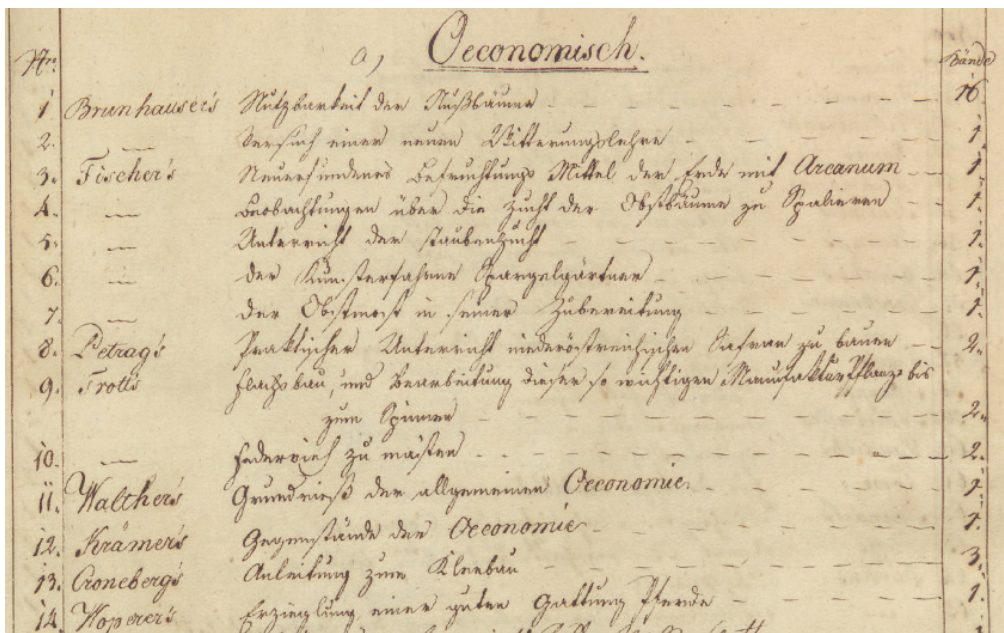 Nr. a) Oeconomisch. Bände
1 Brunhauser's Nutzbarkeit der Nußbäume 16
2. — Versuch einer neuen Witterungslehre 1.
3. Fischer's Neuerfundenes Befruchtungs Mittel der Erde mit Arcanum 1.
4. — Beobachtungen über die Zucht der Obstbäume zu Spalieren 1.
5. — Unterricht der Taubenzucht 1.
6. — Der Kunsterfahrne Spargelgärtner 1.
7. — Der Obstmost in seiner Zubereitung 1.
8. Petrag's Praktischer Unterricht niederöstreichischen Safran zu bauen 2.
9. Trott's Flachsbau, und Bearbeitung dieser so wichtigen ManufakturPflanze bis
zum Spinnen 2.
10. — Federvieh zu mästen 2.
11. Walther's Grundrieß der allgemeinen Oeconomie 1.
12. Krämer's Gegenstände der Oeconomie 1.
13. Croneberg's Anleitung zum Kleebau 3.
14. Woperer's Erzieglung einer guten Gattung Pferde 1.